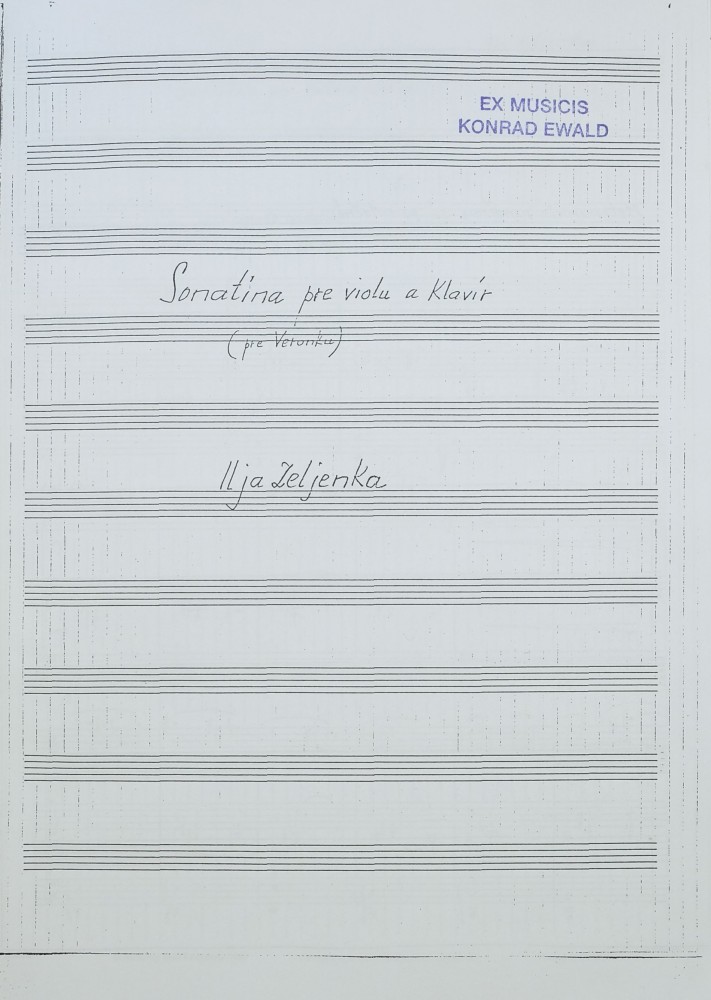 EX MUSICIS
KONRAD EWALD
Sonatína pre violu a Klavír
(pre Verunku)
Ilja Zeljenka